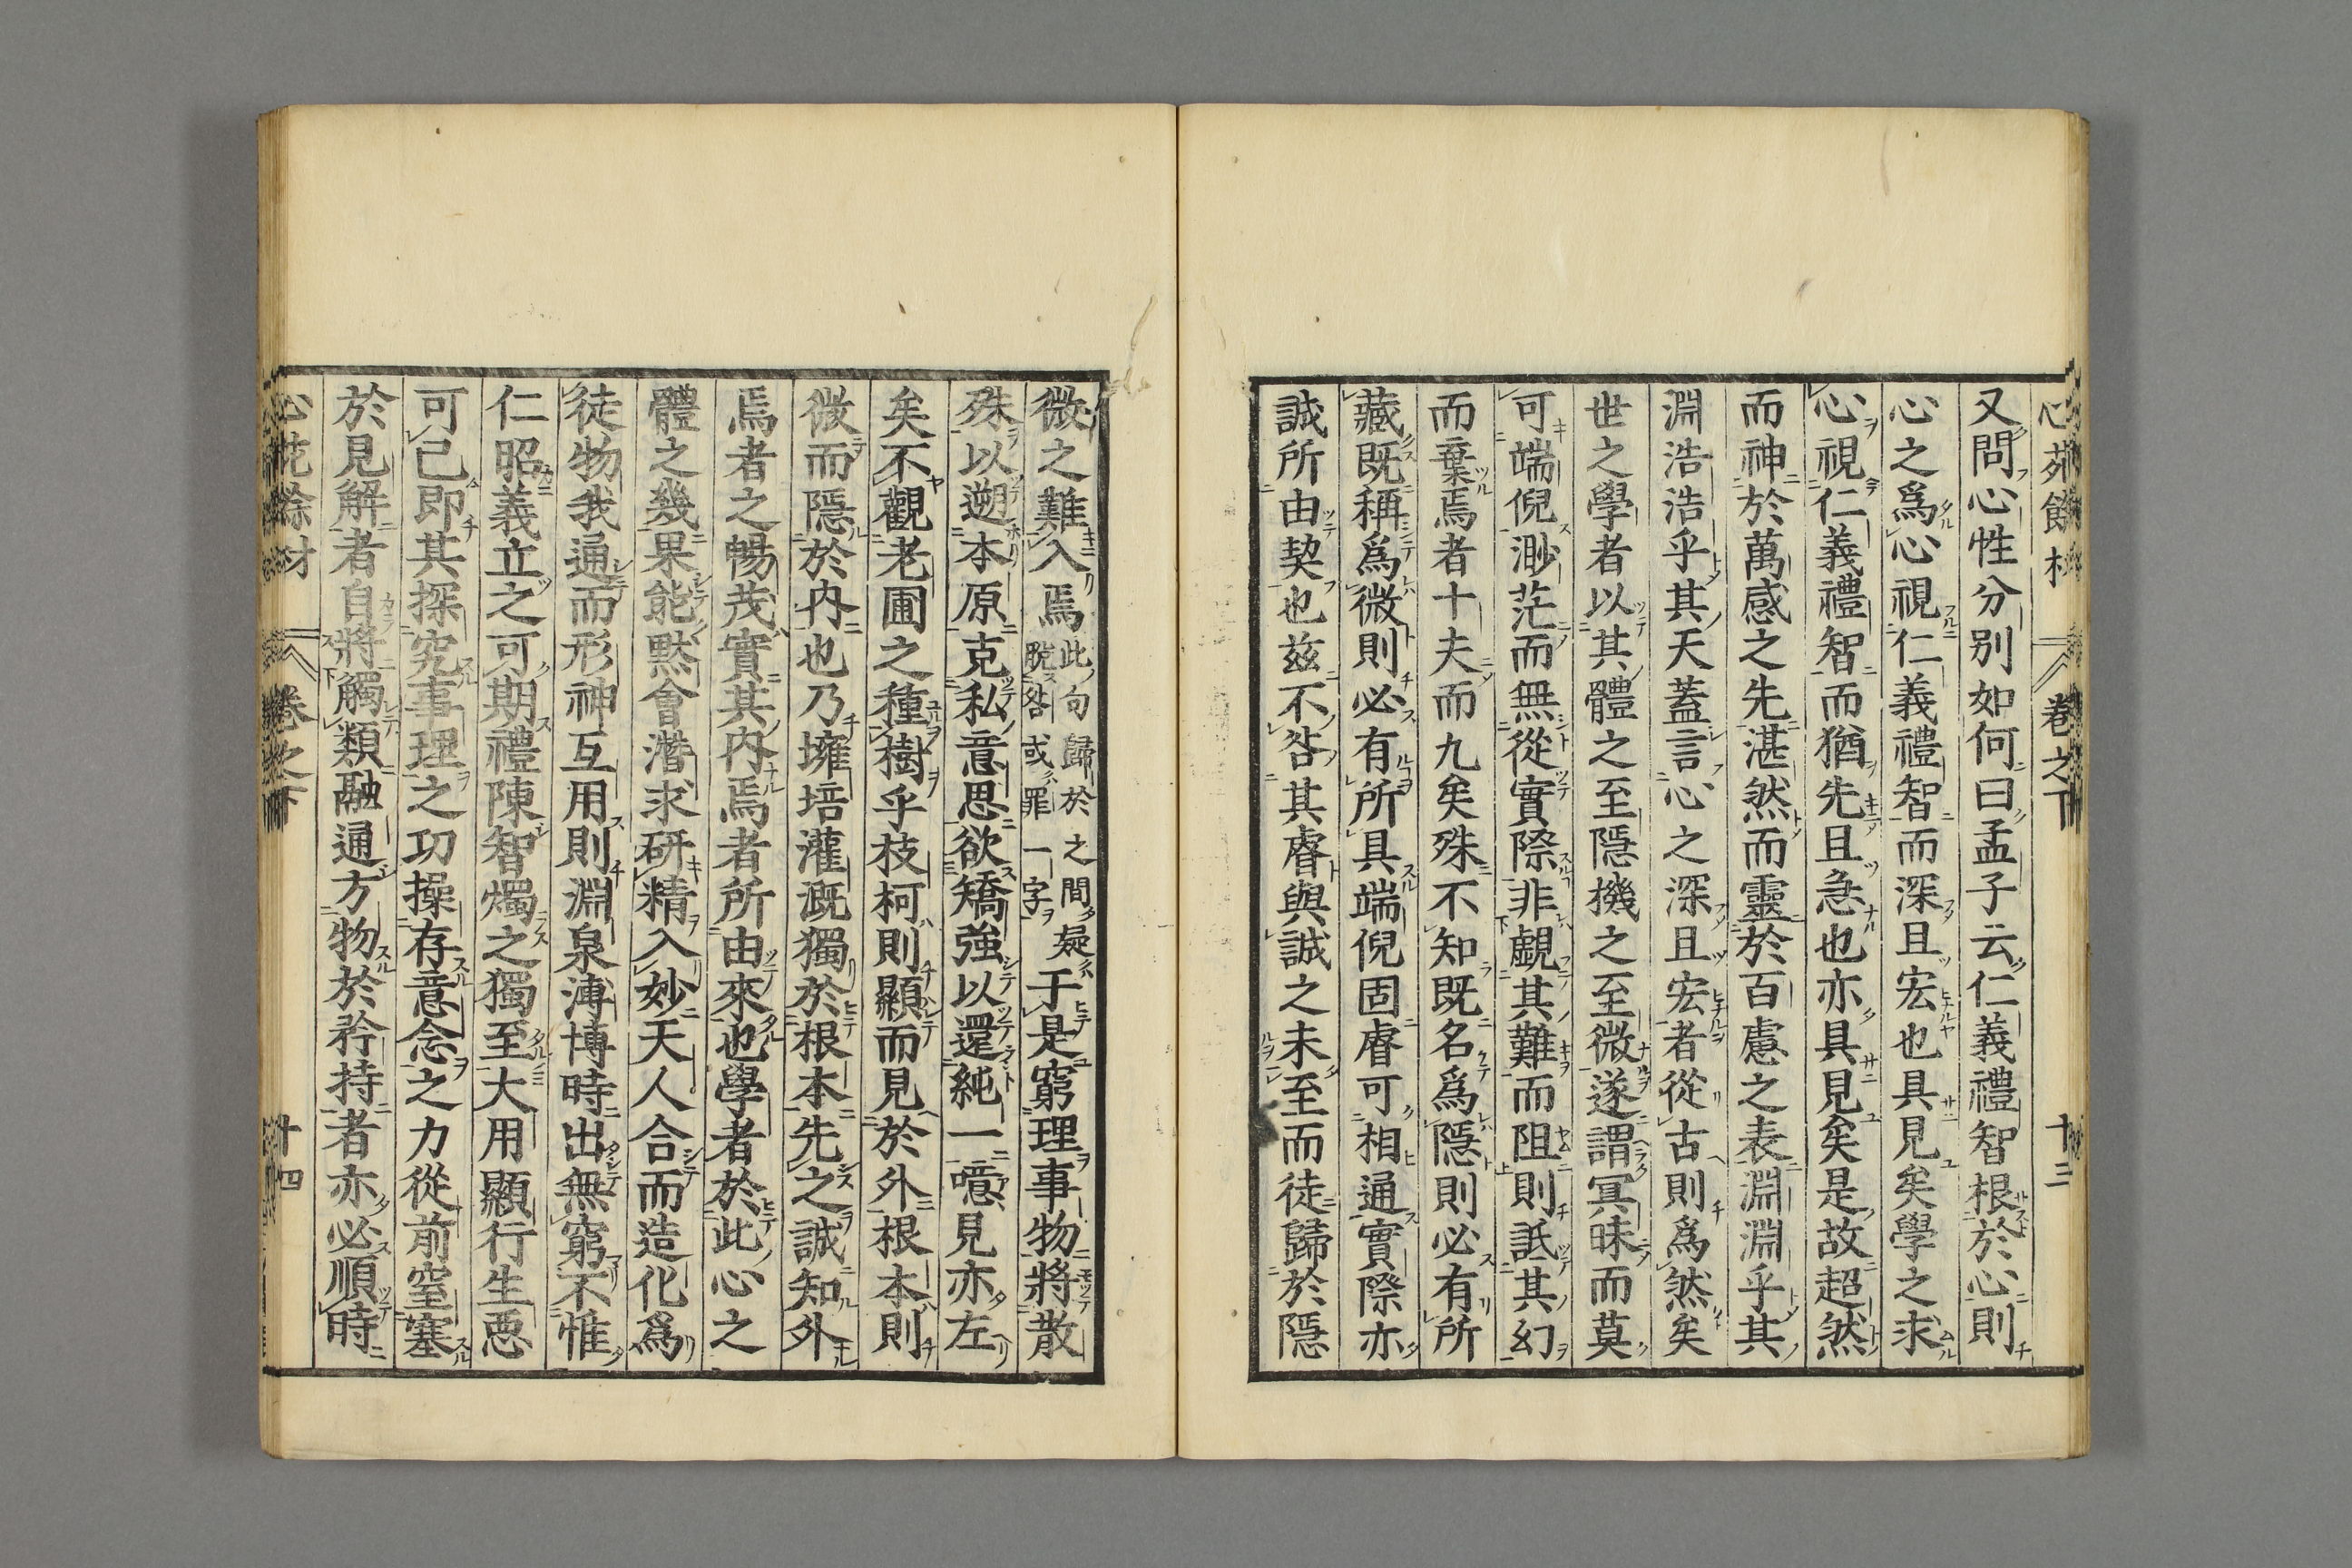 心苑餘材 卷之下 十三
又問心性分别如何曰孟子云仁義禮智根於心則
心之爲心視仁義禮智而深且宏也具見矣學之求
心視仁義禮智而猶先且急也亦具見矣是故超然
而神於萬感之先湛然而靈於百慮之表淵淵乎其
淵浩浩乎其天蓋言心之深且宏者從古則爲然矣
世之學者以其體之至隱機之至微遂謂冥昧而莫
可端倪渺茫而無從實際非覷其難而阻則詆其幻
而棄焉者十夫而九矣殊不知既名爲隱則必有所
藏既稱爲微則必有所具端倪固睿可相通實際亦
誠所由契也兹不咎其睿與誠之未至而徒歸於隱
微之難入焉此句歸於之間疑
脱咎或罪一字于是窮理事物將散
殊以遡本原克私意思欲矯強以還純一噫見亦左
矣不觀老圃之種樹乎枝柯則顯而見於外根本則
微而隱於内也乃擁培灌溉獨於根本先之誠知外
焉者之暢茂實其内焉者所由來也學者於此心之
體之幾果能黙會潛求研精入妙天人合而造化爲
徒物我通而形神互用則淵泉溥博時出無窮不惟
仁昭義立之可期禮陳智燭之獨至大用顯行生惡
可已即其探究事理之功操存意念之力從前窒塞
於見解者自將觸類融通方物於矜持者亦必順時
心苑餘材 卷之下 十四